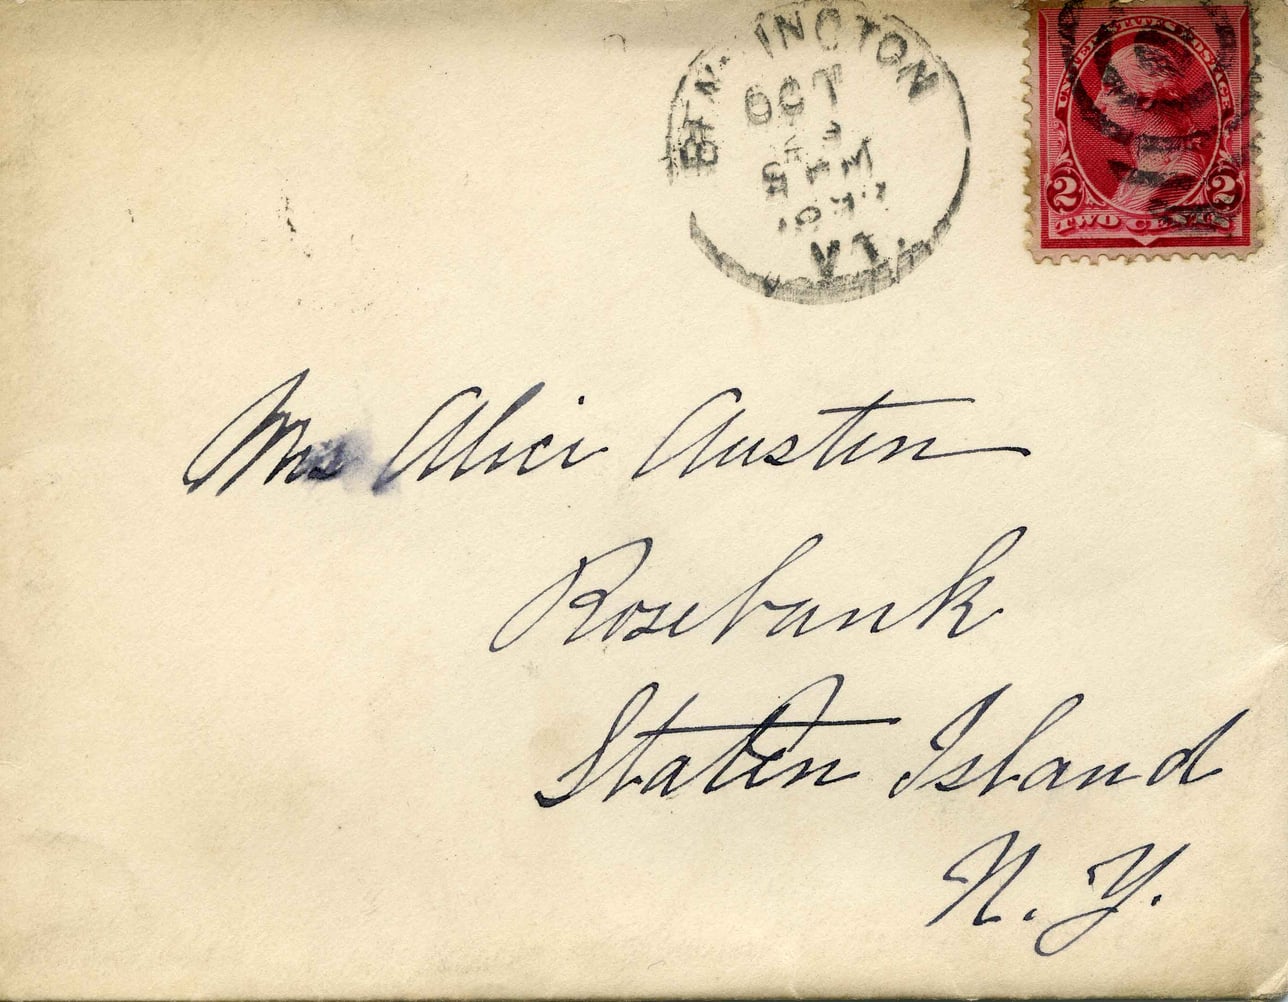 BENNINGTON
OCT
VT.
UNITED STATES POSTAGE
2 2
TWO CENTS
Mrs Alice Austen
Rosebank
Staten Island
N. Y.